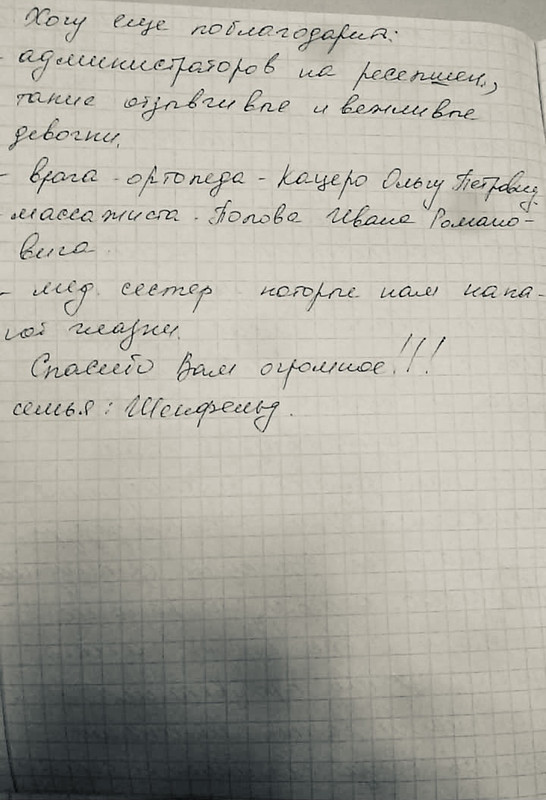 Хочу еще поблагодарить:
- администраторов на ресепшен,
такие отзывчивые и вежливые
девочки.
- врача-ортопеда - Кацеро Ольгу Петровну.
- массажиста - Попова Ивана Романо-
вича.
- мед. сестер которые нам капа-
ют глазки.
Спасибо Вам огромное!!!
семья: Шенфельд.